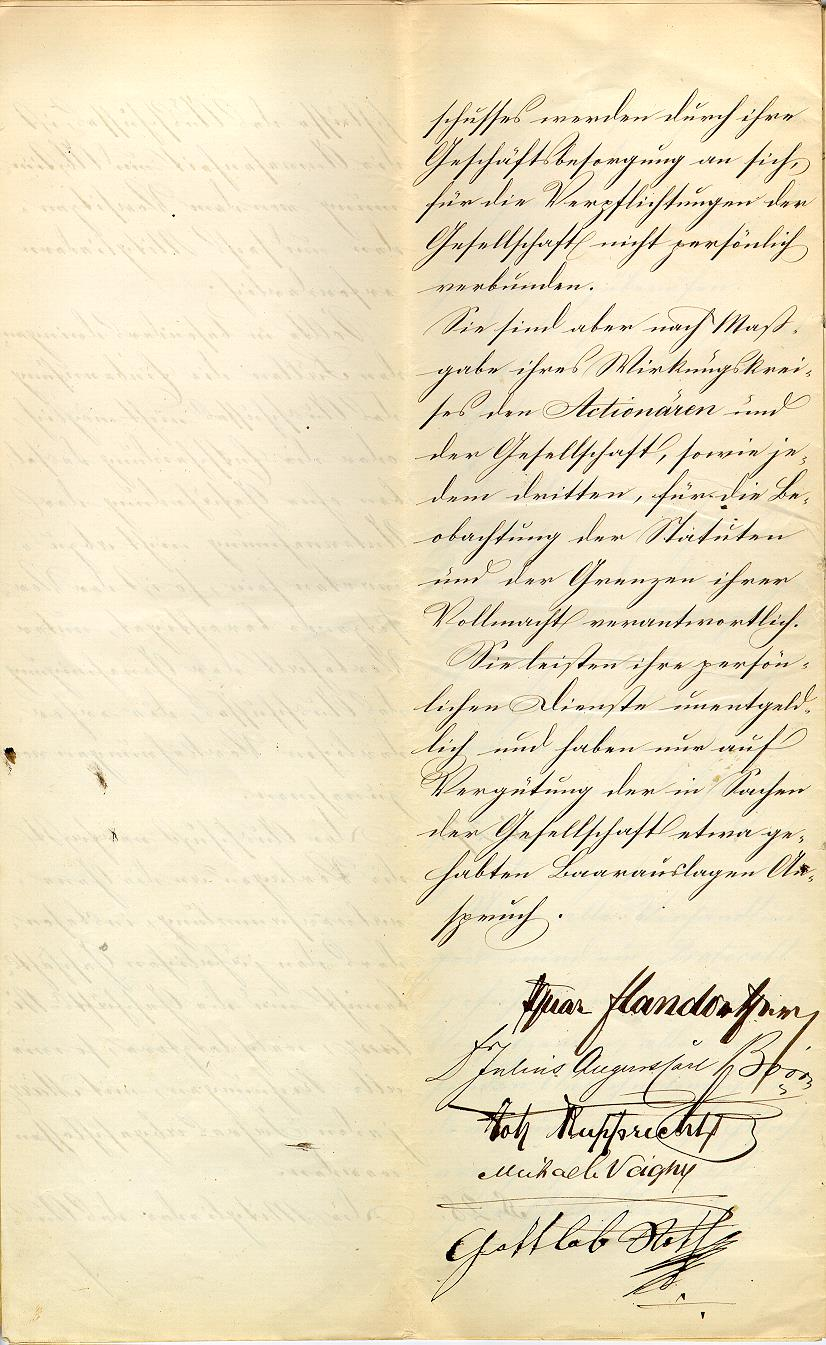 schusses werden durch ihre
Geschäftsbesorgung an sich,
für die Verpflichtungen der
Gesellschaft nicht persönlich
verbunden.
Sie sind aber nach Maß-
gabe ihres Wirkungskrei-
ses den Actionären und
der Gesellschaft, sowie je-
dem dritten, für die Be-
obachtung der Statuten
und der Grenzen ihrer
Vollmacht verantwortlich.
Sie leisten ihre persön-
lichen Dienste unentgeld-
lich und haben nur auf
Vergütung der in Sachen
der Gesellschaft etwa ge-
habten Baarauslagen An-
spruch.
Dr Julius
Joh Rupprecht
Michael
Gottlob Roth